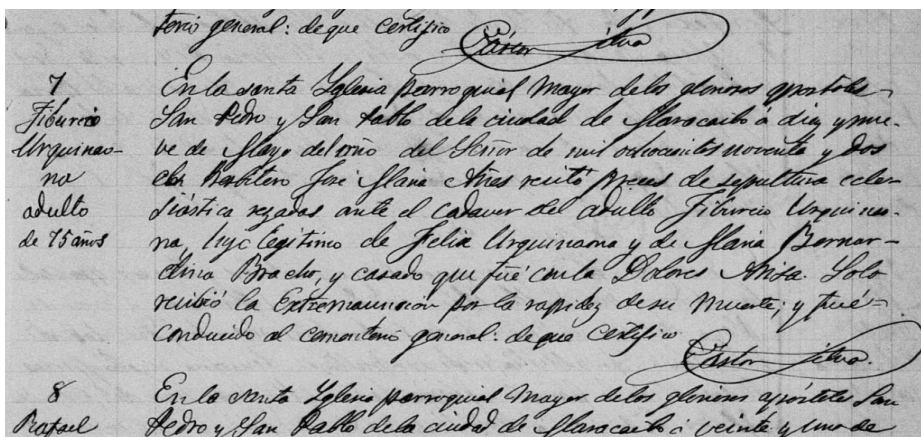 terio general: de que certifico Cástor Silva
7
Tiburcio
Urquinao-
na
adulto
de 75 años
En la santa Yglesia parroquial Mayor de los gloriosos apóstoles
San Pedro y San Pablo de la ciudad de Maracaibo a diez y nue-
ve de Mayo del año del Señor de mil ochocientos noventa y dos
el Presbítero José Maria recitó preces de sepultura ecle-
siástica rezadas ante el cadaver del adulto Tiburcio Urquinao-
na, hijo legítimo de Felix Urquinaona y de Maria Bernar-
dina Bracho, y casado que fué con la Dolores Solo
recibió la Extremaunción por la rapidez de su muerte; y fué
conducido al cementerio general: de que certifico
Cástor Silva
8
Rafael
En la santa Yglesia parroquial Mayor de los gloriosos apóstoles San
Pedro y San Pablo de la ciudad de Maracaibo á veinte y uno de